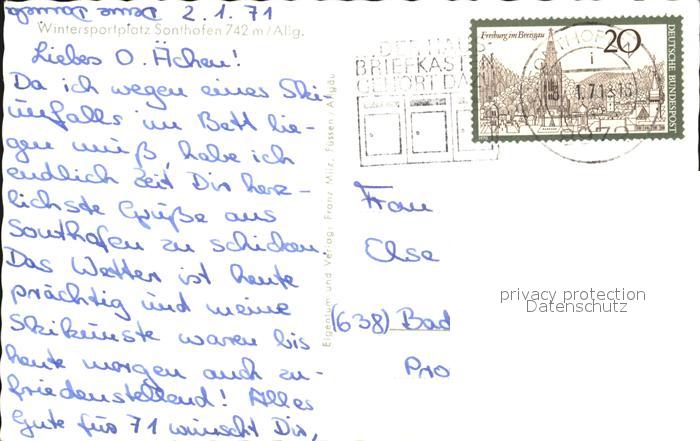 2.1.71
Wintersportplatz Sonthofen 742 m/Allg.
Liebes O. Ächen!
Da ich wegen eines Ski-
unfalls im Bett lie-
gen muß, habe ich
endlich Zeit Dir herz-
lichste Grüße aus
Sonthofen zu schicken.
Das Wetter ist heute
prächtig und meine
Skikünste waren bis
heute morgen auch zu-
friedenstellend! Alles
Gute für 71 wünscht Dir,
Deine
Eigentum und Verlag: Franz Milz, Füssen / Allgäu
BRIEFKASTEN
GEHÖRT
Freiburg im Breisgau
20
DEUTSCHE BUNDESPOST
Frau
Else
(638) Bad
Pro
privacy protection
Datenschutz